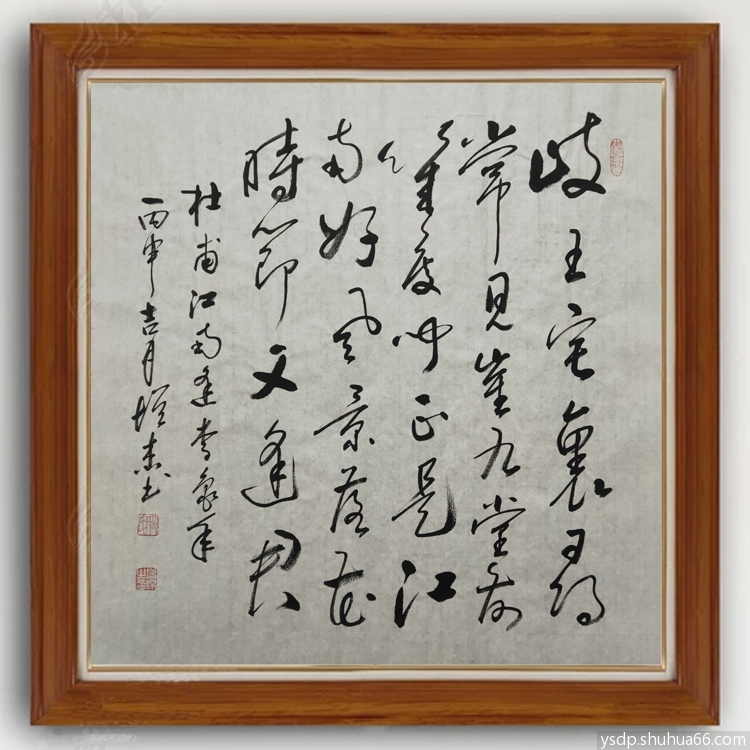 歧王宅裏尋
常見崔九堂前
幾度聞正是江
南好風景落花
時節又逢君
杜甫江南逢李龜年
丙申吉月增杰书
ysdp.shuhua66.com